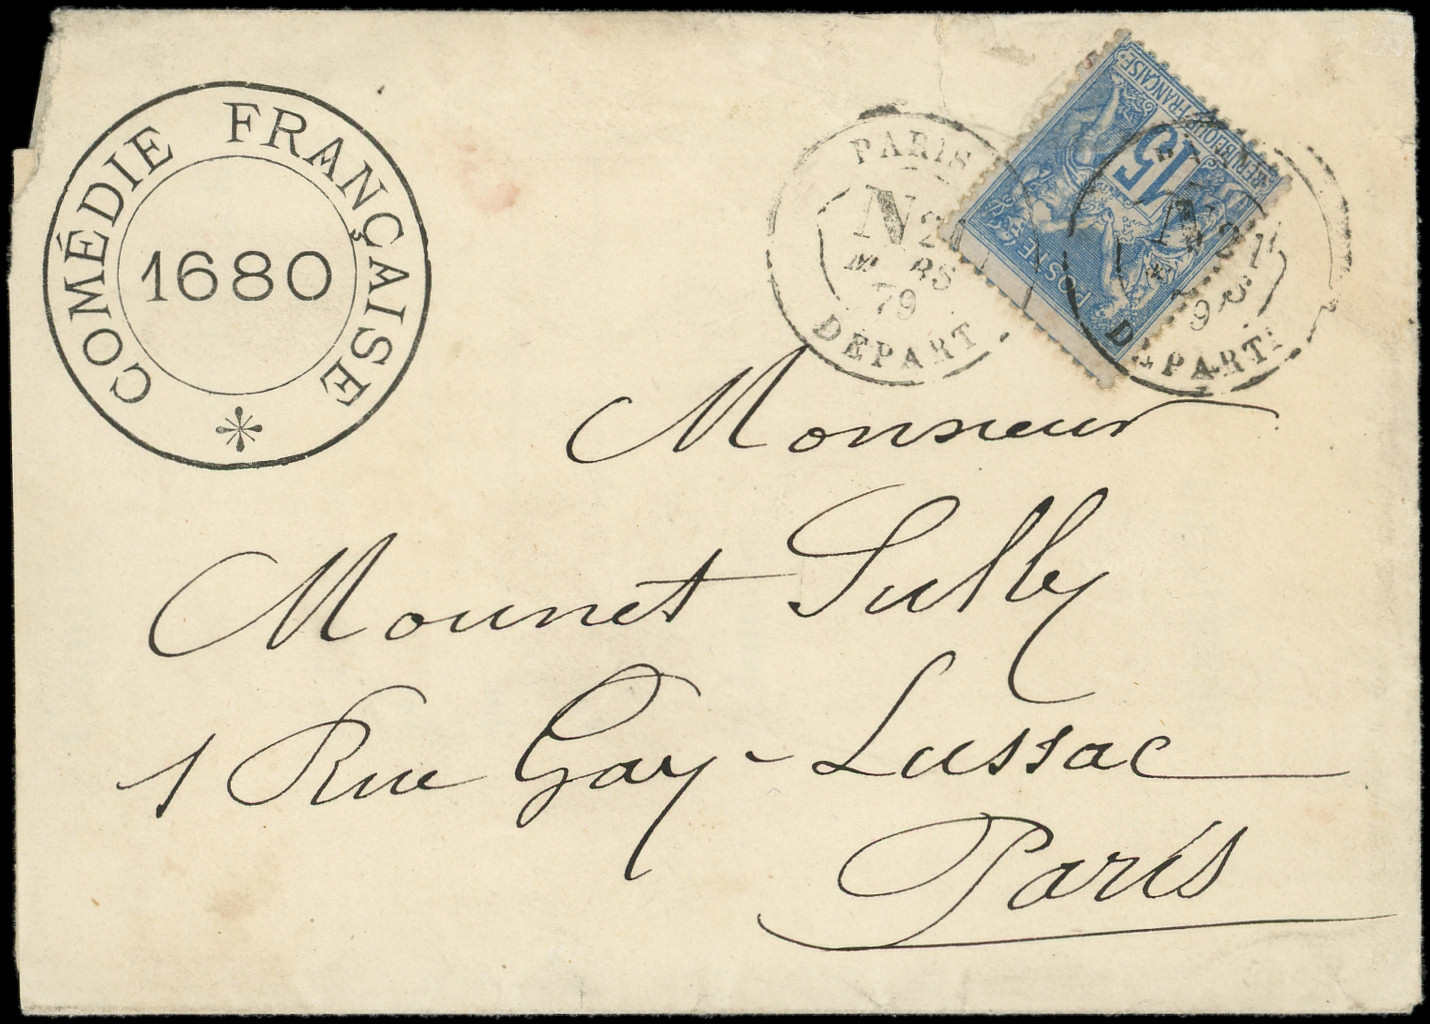 COMÉDIE FRANÇAISE
1680
*
PARIS
N 21
MARS
79
DÉPART
RÉPUBLIQUE FRANÇAISE
15
POSTES
N 21
79
DÉPART
Monsieur
Mounet Sully
1 Rue Gay-Lussac
Paris